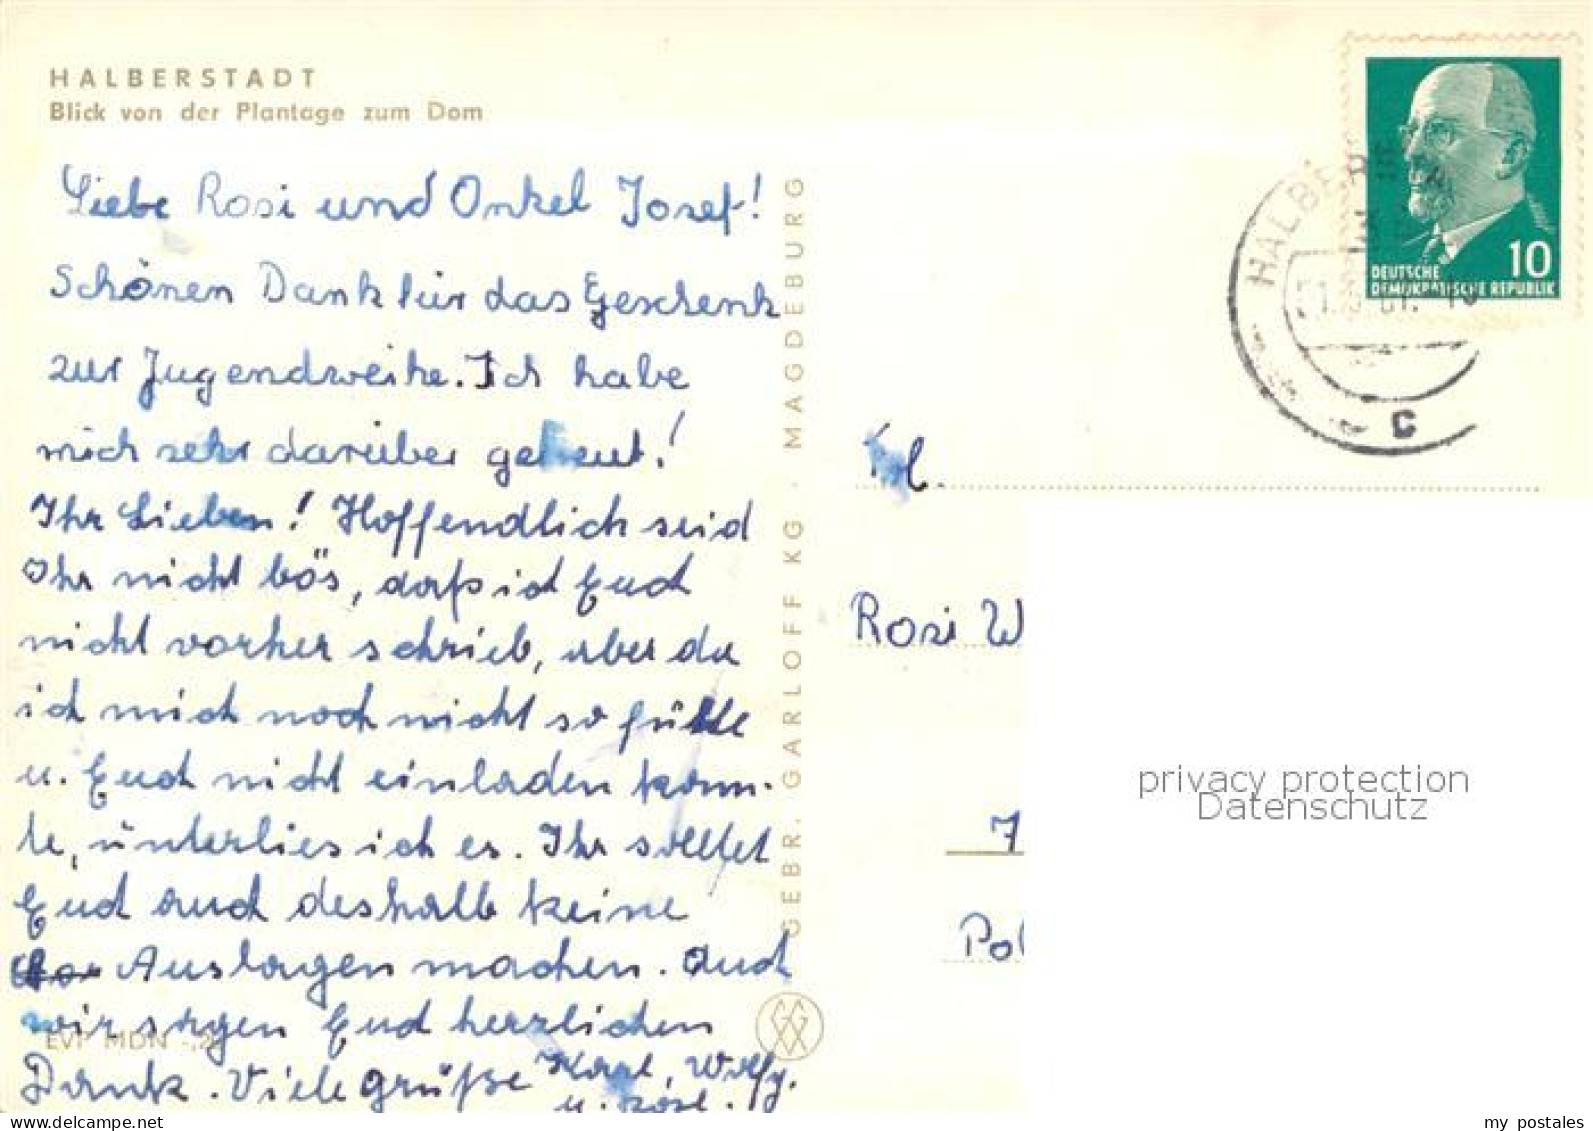 HALBERSTADT
Blick von der Plantage zum Dom
Liebe Rosi und Onkel Josef!
Schönen Dank für das Geschenk
zur Jugendweihe. Ich habe
mich sehr darüber gefreut!
Ihr Lieben! Hoffendlich seid
Ihr nicht bös, daß ich Euch
nicht vorher schrieb, aber da
ich mich noch nicht so fühlte
u. Euch nicht einladen konn-
te, unterlies ich es. Ihr solltet
Euch auch deshalb keine
Auslagen machen. Auch
wir sagen Euch herzlichen
Dank. Viele Grüße Karl, Wolfg.
u.
EVP MDN -,20
GEBR. GARLOFF KG. MAGDEBURG
DEUTSCHE
DEMOKRATISCHE REPUBLIK
10
HALBERSTADT
c
Frl.
Rosi W
7
Pol
privacy protection
Datenschutz
www.delcampe.net
my_postales